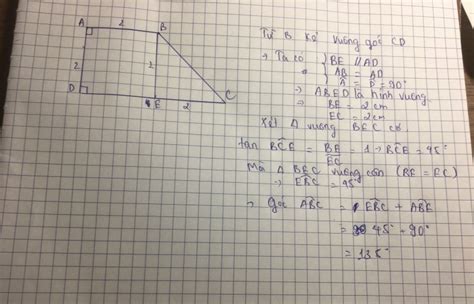 A 2 B
2 2
D E 2 C
Từ B kẻ vuông góc CD
→ Ta có { BE // AD
AB = AD
A = D = 90°
→ ABED là hình vuông.
→ BE = 2 cm
EC = 2cm
Xét Δ vuông BEC có
tan BĈE = BE/EC = 1 → BĈE = 45°
Mà Δ BEC vuông cân (BE = EC)
→ EB̂C = 45°
→ góc ABC = EB̂C + ABE
= 45° + 90°
= 135°